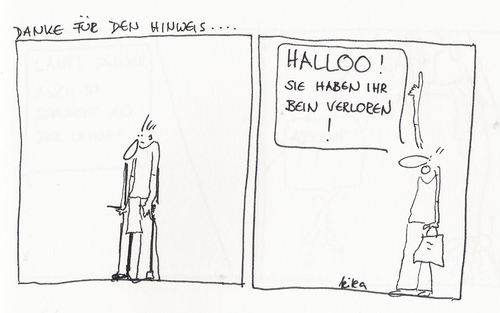 DANKE FÜR DEN HINWEIS....
HALLOO!
SIE HABEN IHR
BEIN VERLOREN
!
kika